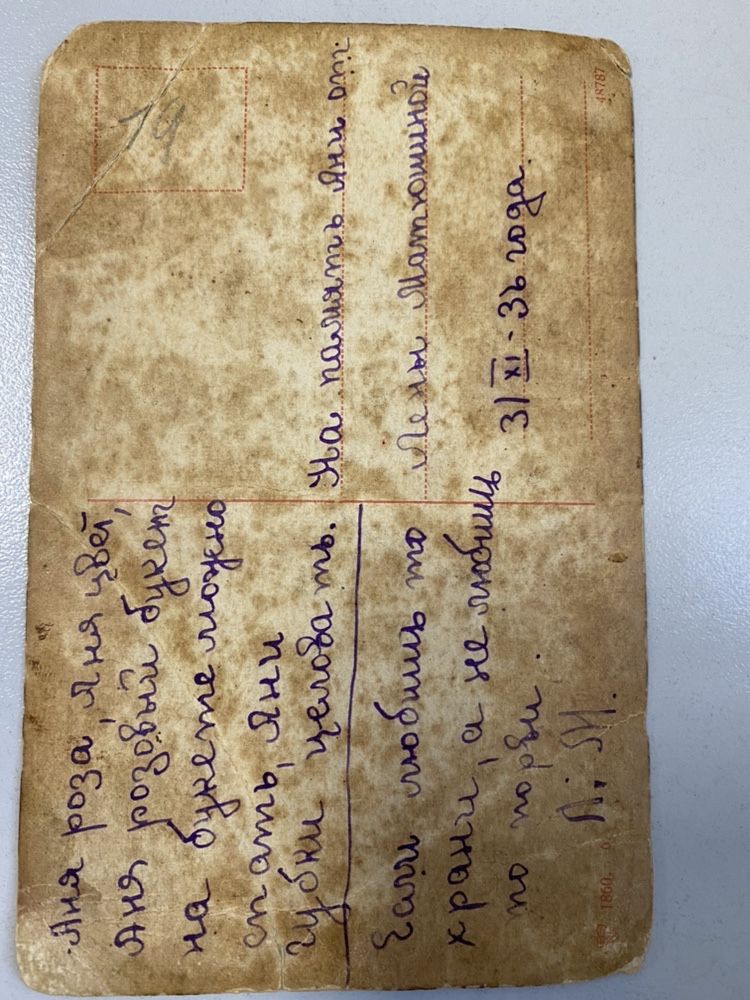 Аня роза, Аня цвет,
Аня розовый букет
на букете можно
спать, Яни
губки целовать.
Если любишь то
храни, а не любишь
то порви.
Л. М.
На память Яни от:
Лены Матюшиной
31 XI - 36 года.
19
48787
1860,